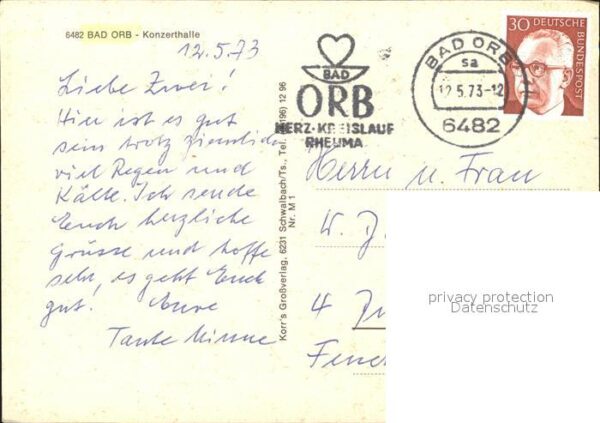 6482 BAD ORB - Konzerthalle
12.5.73
Liebe Zwei!
Hier ist es gut
sein trotz ziemlich
viel Regen und
Kälte. Ich sende
Euch herzliche
Grüsse und hoffe
sehr, es geht Euch
gut! Eure
Tante Minne
Korr's Großverlag, 6231 Schwalbach/Ts., Tel. (06196) 12 96
Nr. M 1
BAD
ORB
HERZ·KREISLAUF
RHEUMA
BAD ORB
sa
12.5.73-12
6482
30 DEUTSCHE
BUNDESPOST
Herrn u. Frau
W. J
4
privacy protection
Datenschutz